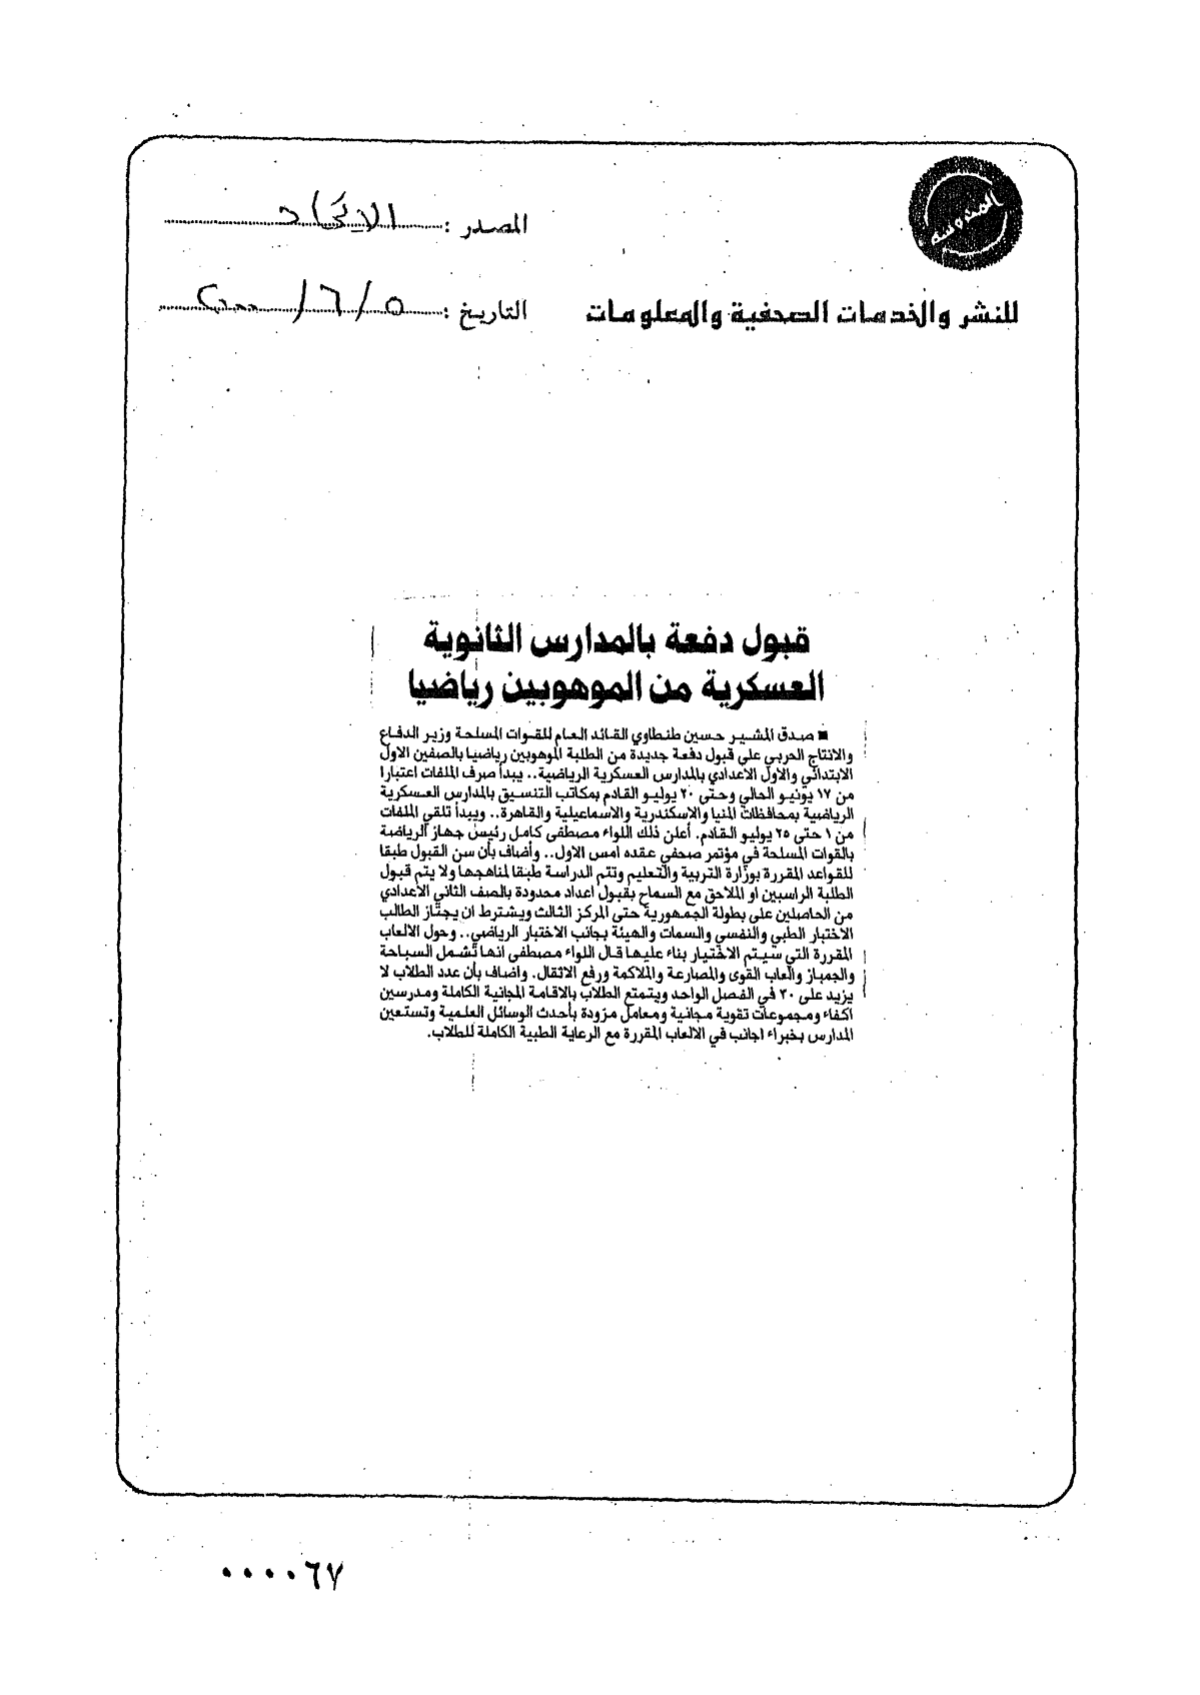 المحروسة
المصدر : الاتحاد
للنشر والخدمات الصحفية والمعلومات
التاريخ : ٥ / ٦ / ٢٠٠٠
قبول دفعة بالمدارس الثانوية
العسكرية من الموهوبين رياضيا
■ صدق المشير حسين طنطاوي القائد العام للقوات المسلحة وزير الدفاع
والانتاج الحربي على قبول دفعة جديدة من الطلبة الموهوبين رياضيا بالصفين الاول
الابتدائي والاول الاعدادي بالمدارس العسكرية الرياضية.. يبدأ صرف الملفات اعتبارا
من ١٧ يونيو الحالي وحتى ٢٠ يوليو القادم بمكاتب التنسيق بالمدارس العسكرية
الرياضية بمحافظات المنيا والاسكندرية والاسماعيلية والقاهرة.. ويبدأ تلقي الملفات
من ١ حتى ٢٥ يوليو القادم. أعلن ذلك اللواء مصطفى كامل رئيس جهاز الرياضة
بالقوات المسلحة في مؤتمر صحفي عقده امس الاول.. وأضاف بأن سن القبول طبقا
للقواعد المقررة بوزارة التربية والتعليم وتتم الدراسة طبقا لمناهجها ولا يتم قبول
الطلبة الراسبين او الملاحق مع السماح بقبول اعداد محدودة بالصف الثاني الاعدادي
من الحاصلين على بطولة الجمهورية حتى المركز الثالث ويشترط ان يجتاز الطالب
الاختبار الطبي والنفسي والسمات والهيئة بجانب الاختبار الرياضي.. وحول الالعاب
المقررة التي سيتم الاختيار بناء عليها قال اللواء مصطفى انها تشمل السباحة
والجمباز والعاب القوى والمصارعة والملاكمة ورفع الاثقال. واضاف بأن عدد الطلاب لا
يزيد على ٣٠ في الفصل الواحد ويتمتع الطلاب بالاقامة المجانية الكاملة ومدرسين
اكفاء ومجموعات تقوية مجانية ومعامل مزودة بأحدث الوسائل العلمية وتستعين
المدارس بخبراء اجانب في الالعاب المقررة مع الرعاية الطبية الكاملة للطلاب.
٠٠٠٠٦٧